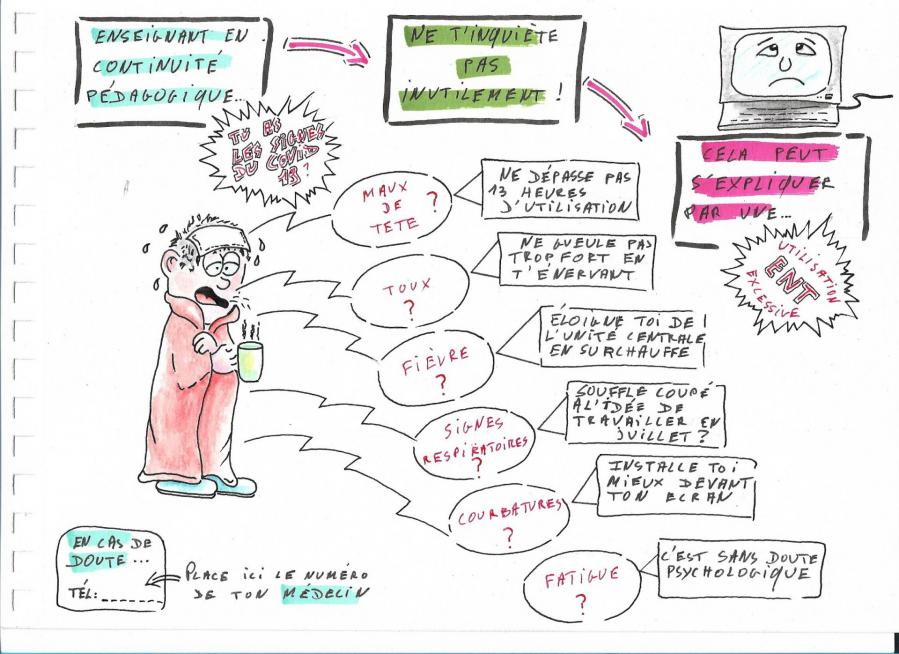 ENSEIGNANT EN
CONTINUITÉ
PÉDAGOGIQUE...
NE T'INQUIÈTE
PAS
INUTILEMENT !
CELA PEUT
S'EXPLIQUER
PAR UNE...
UTILISATION
ENT
EXCESSIVE
TU AS
LES SIGNES
DU COVID
19 ?
MAUX
DE
TETE ?
NE DÉPASSE PAS
13 HEURES
D'UTILISATION
TOUX
?
NE GUEULE PAS
TROP FORT EN
T'ÉNERVANT
FIÈVRE
?
ÉLOIGNE TOI DE
L'UNITÉ CENTRALE
EN SURCHAUFFE
SIGNES
RESPIRATOIRES
?
SOUFFLE COUPÉ
A L'IDÉE DE
TRAVAILLER EN
JUILLET ?
COURBATURES
?
INSTALLE TOI
MIEUX DEVANT
TON ECRAN
FATIGUE
?
C'EST SANS DOUTE
PSYCHOLOGIQUE
EN CAS DE
DOUTE ...
TÉL: _ _ _ _ _ _
PLACE ICI LE NUMÉRO
DE TON MÉDECIN